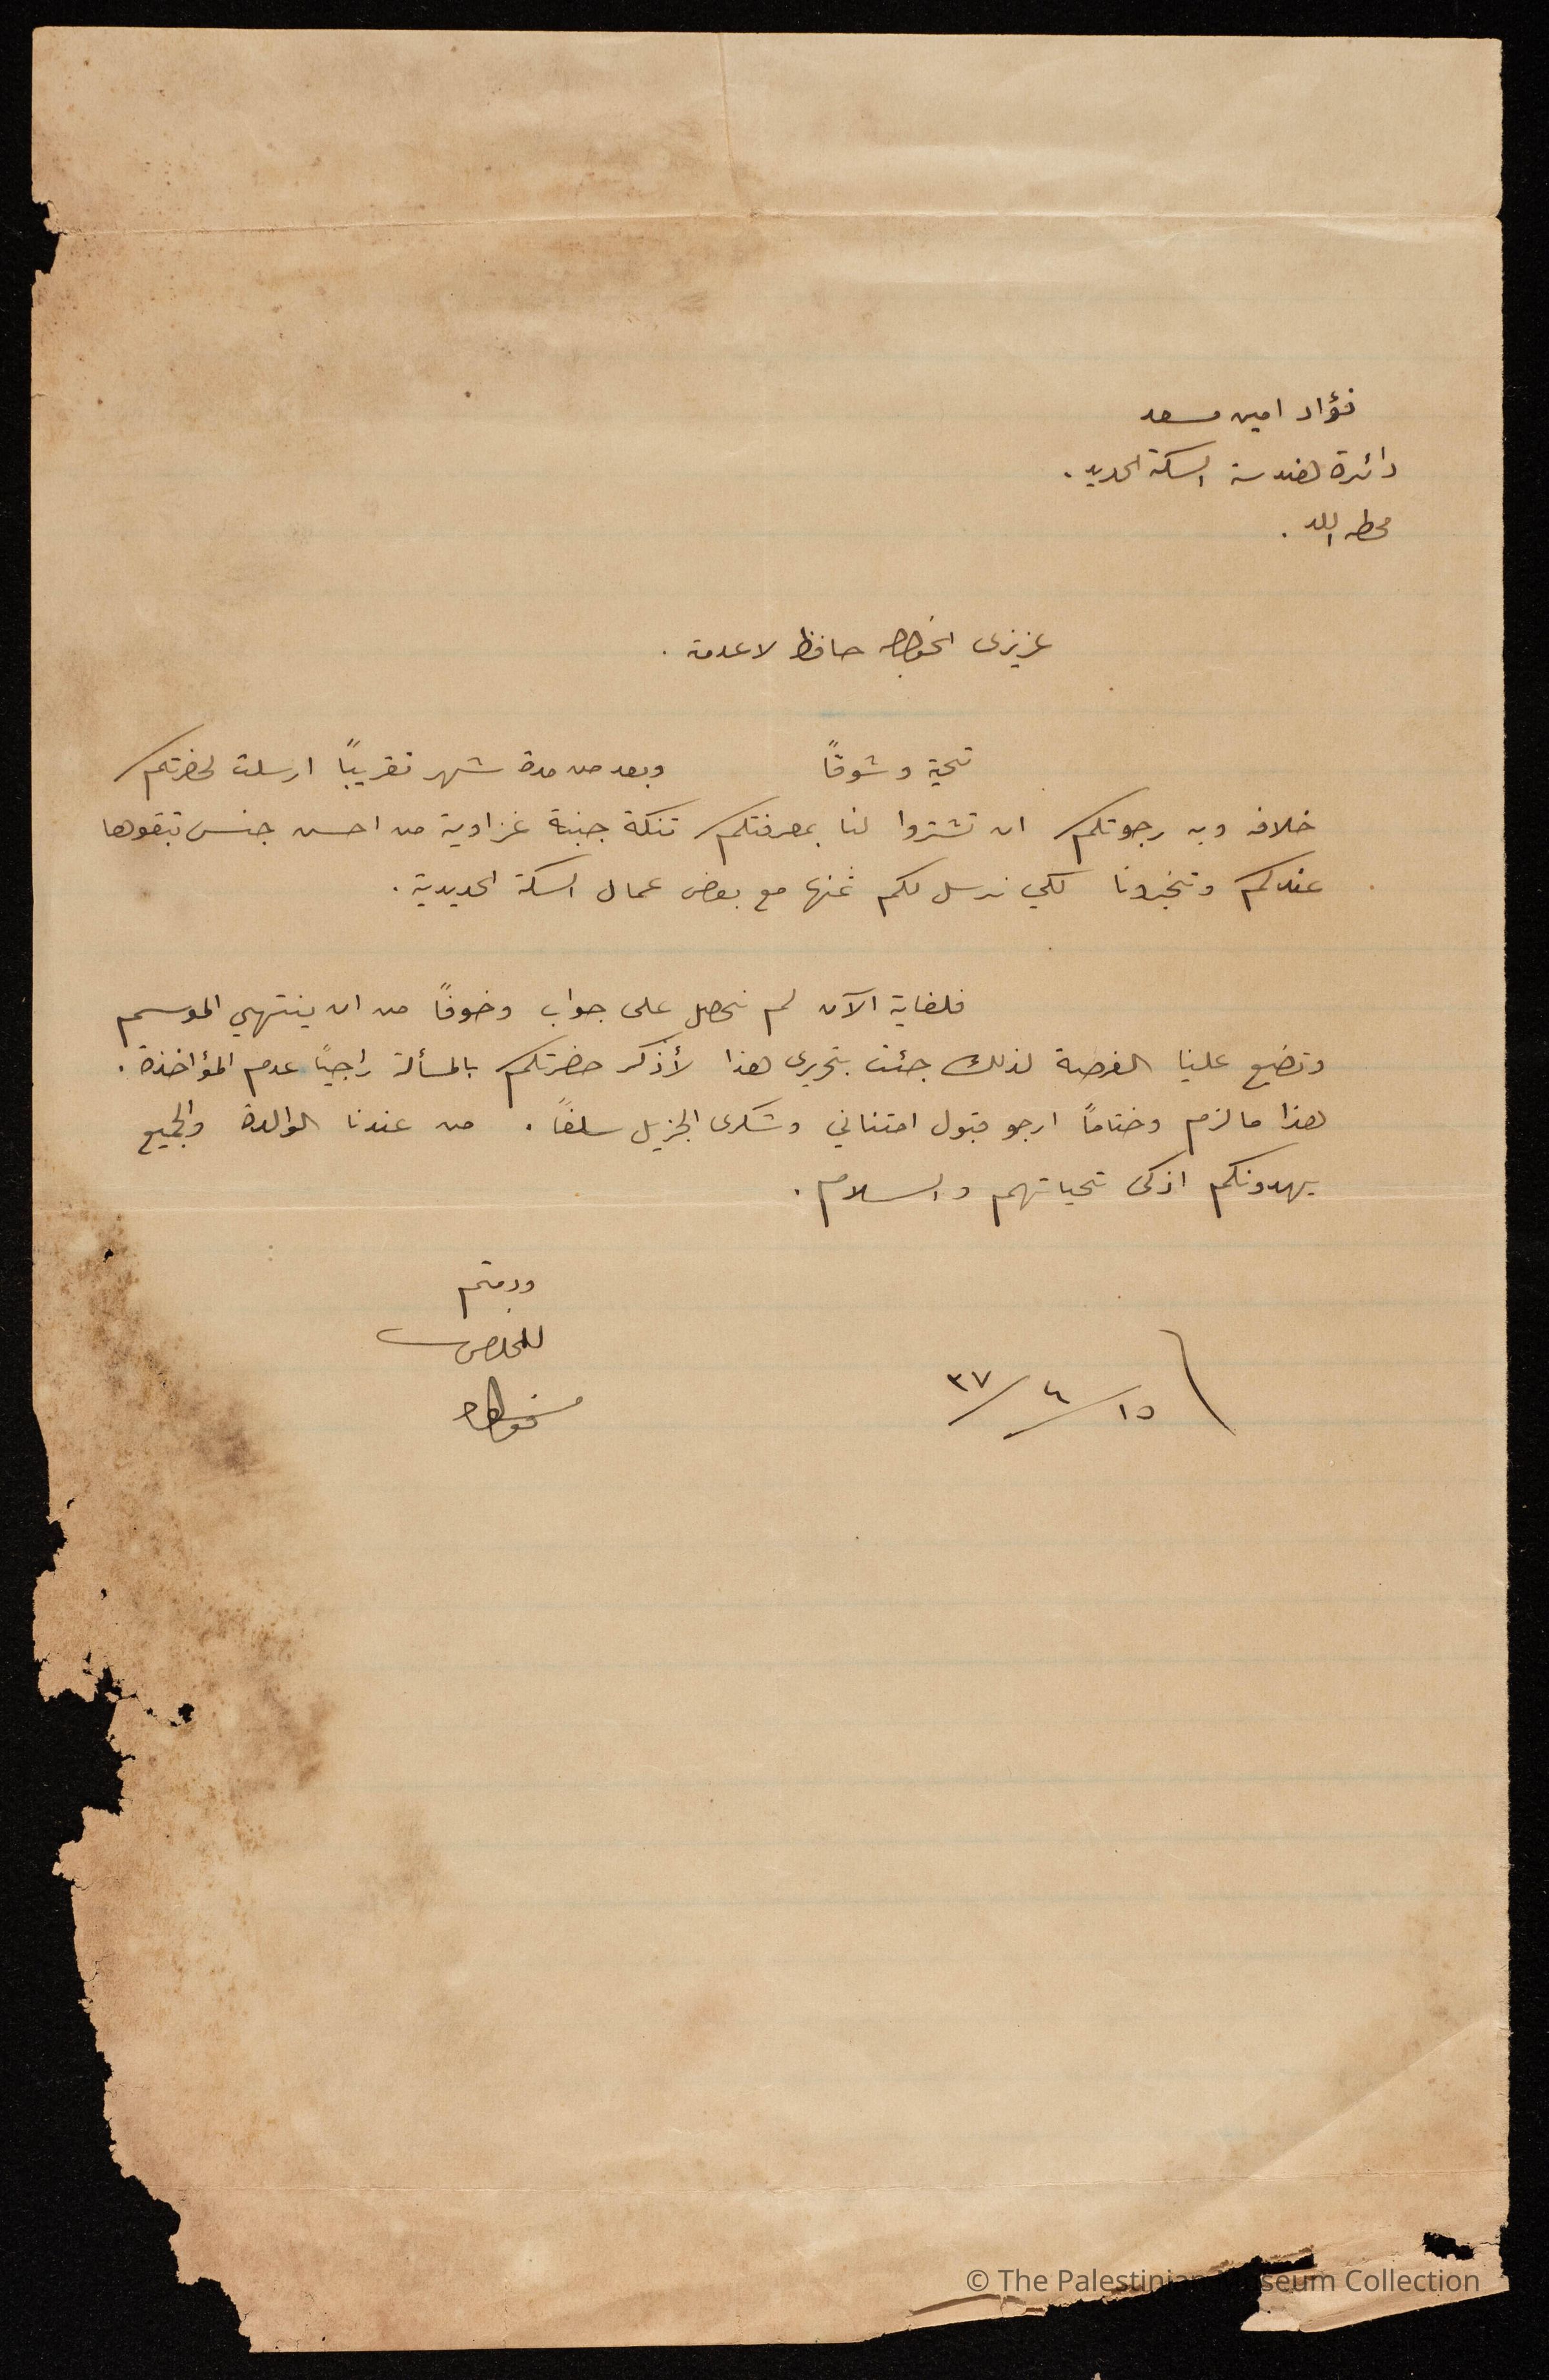 فؤاد امين مسعد
دائرة هندسة السكة الحديد .
محطه اللد .
عزيزى الخواجه حافظ لا عدمته .
تحية وشوقاً وبعد من مدة شهر تقريباً ارسلت لحضرتكم
خلافه وبه رجوتكم ان تشتروا لنا بمعرفتكم تنكة جبنة غزاوية من احسن جنس تبقوها
عندكم وتخبرونا لكي نرسل لكم ثمنها مع بعض عمال السكة الحديدية .
فلغاية الآن لم نحصل على جواب وخوفاً من ان ينتهي الموسم
وتضيع علينا الفرصة لذلك جئت بتحريرى هذا لأذكر حضرتكم بالمسألة راجياً عدم المؤاخذة .
هذا ما لزم وختاماً ارجو قبول امتناني وشكرى الجزيل سلفاً . من عندنا الوالدة والجميع
يهدونكم ازكى تحياتهم والسلام .
ودمتم
للمخلص
١٥/٤/٣٧
© The Palestinian Museum Collection